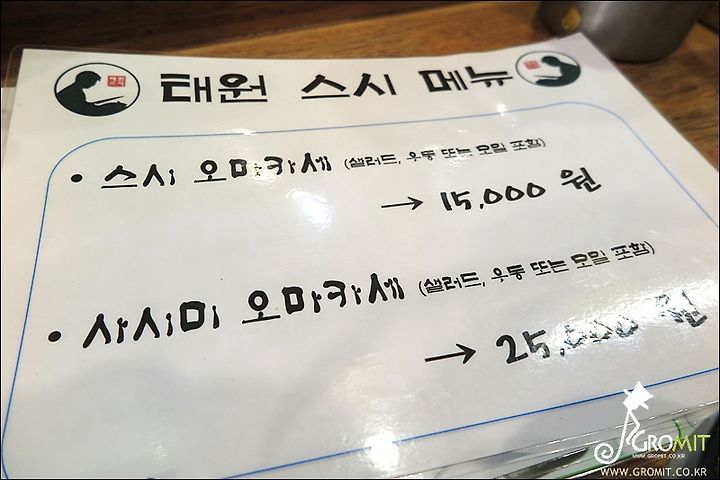 태원 스시 메뉴
• 스시 오마카세 (샐러드, 우동 또는 모밀 포함)
→ 15,000 원
• 사시미 오마카세 (샐러드, 우동 또는 모밀 포함)
→ 25,000 원
GROMIT
WWW.GROMIT.CO.KR
WWW.GROMIT.CO.KR